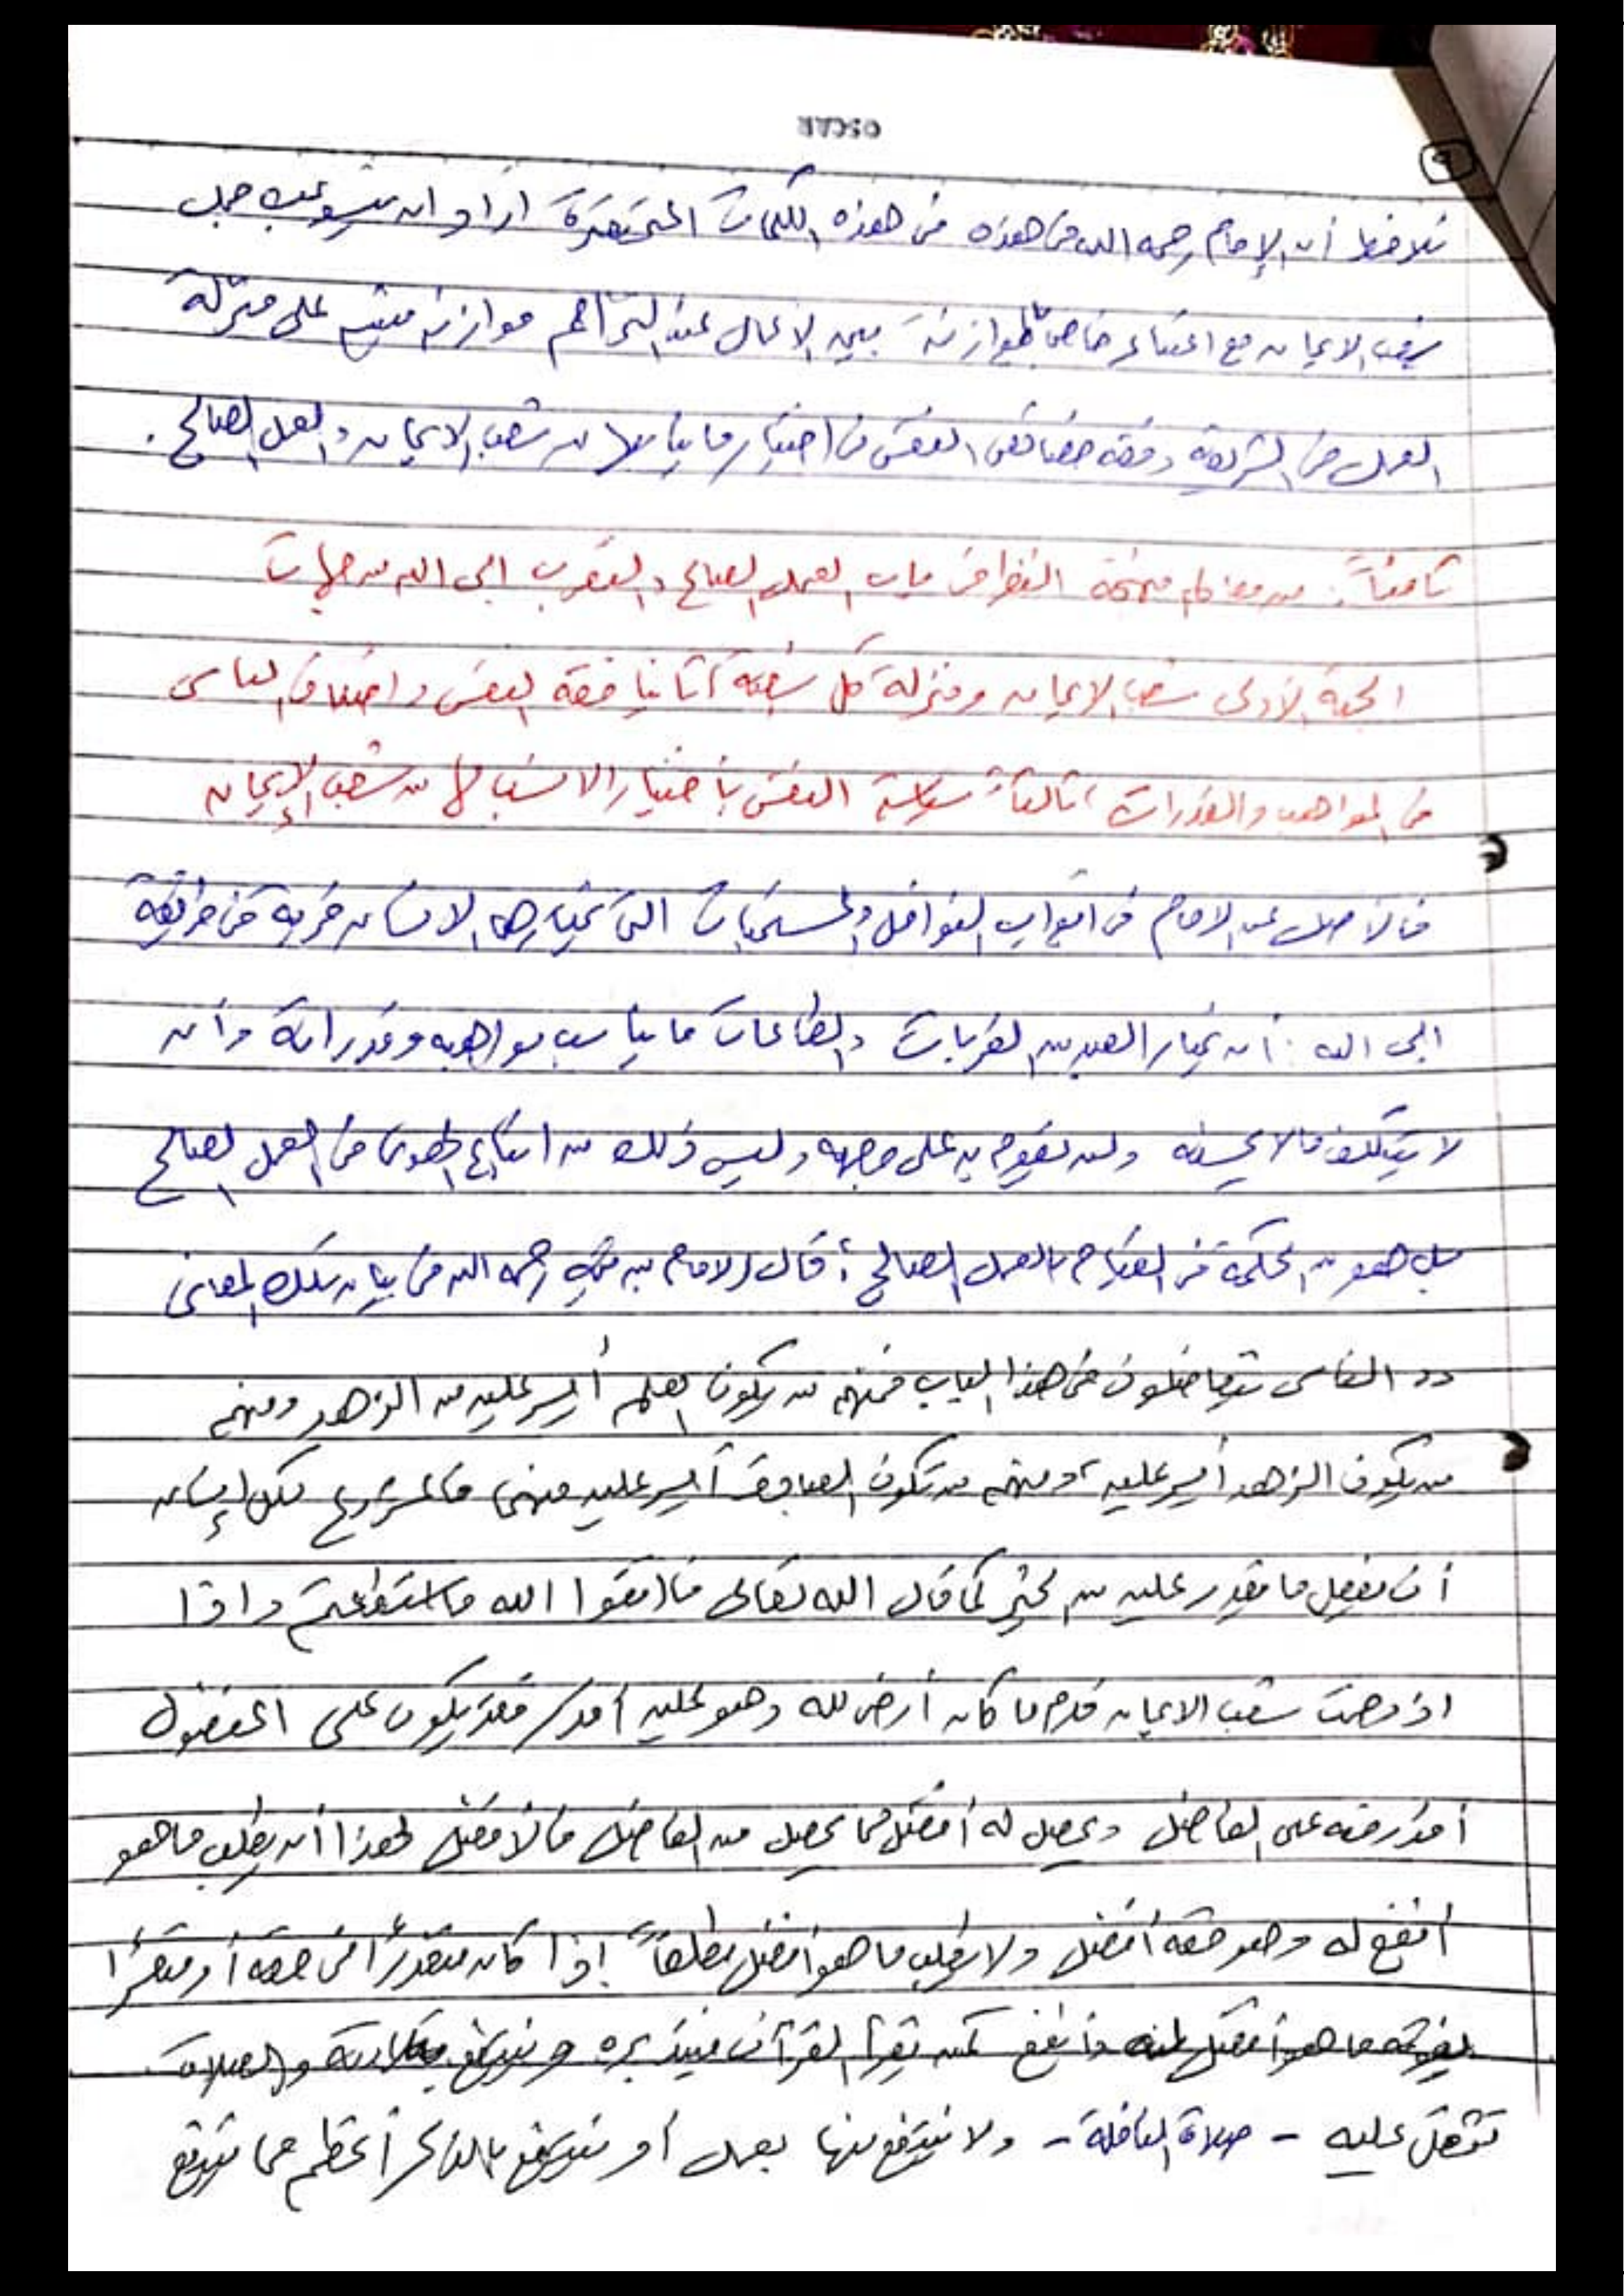 OSCAR
٩
نلاحظ أن الإمام رحمه الله في هذه في هذه الكلمات المختصرة اراد ان يستوعب جمل
شعب الايمان مع اعتناء خاص بالموازنة بين الاعمال عند التزاحم موازنة مبنية على منزلة
العمل في الشريعة وفقه خصائص النفس في اختيار ما يناسبها من شعب الايمان والعمل الصالح.
ثامناً: من معالم منهجه النظر في باب العمل الصالح والتقرب الى الله من جهات
الجهة الأولى شعب الايمان ومنزلة كل شعبة، ثانيا فقه النفس واختلاف الناس
في المواهب والقدرات، ثالثا سياسة النفس باختيار الانسب لها من شعب الإيمان
فالأصل عند الامام في ابواب النوافل والمستحبات التي يختارها الانسان قربة في طريقه
الى الله: أن يختار العبد من القربات والطاعات ما يناسب مواهبه وقدراته وأن
لا يتكلف ما لا يحسنه ولن يقوم به على وجهه وليس ذلك من اتباع الهوى في العمل الصالح
بل هو من الحكمة في القيام بالعمل الصالح؛ قال الامام بن تيمية رحمه الله في بيان تلك المعاني
"الناس يتفاضلون في هذا الباب فمنهم من يكون العلم أيسر عليه من الزهد ومنهم
من يكون الزهد أيسر عليه، ومنهم من تكون العبادة أيسر عليه منهما فالمشروع لكل إنسان
أن يفعل ما يقدر عليه من الخير كما قال الله تعالى فاتقوا الله ما استطعتم واذا
ازدحمت شعب الايمان قدم ما كان أرضى لله وهو عليه أقدر فقد يكون على المفضول
أقدر منه على الفاضل ويحصل له أفضل مما يحصل من الفاضل فالأفضل لهذا أن يطلب ما هو
أنفع له وهو في حقه أفضل ولا يطلب ما هو أفضل مطلقاً إذا كان متعذراً في حقه أو متعسراً
يفوته ما هو أفضل له وأنفع كمن يقرأ القرآن فيتدبره وينتفع بتلاوته والصلاة
تثقل عليه - صلاة النافلة - ولا ينتفع منها بعمل أو ينتفع بالذكر أعظم مما ينتفع